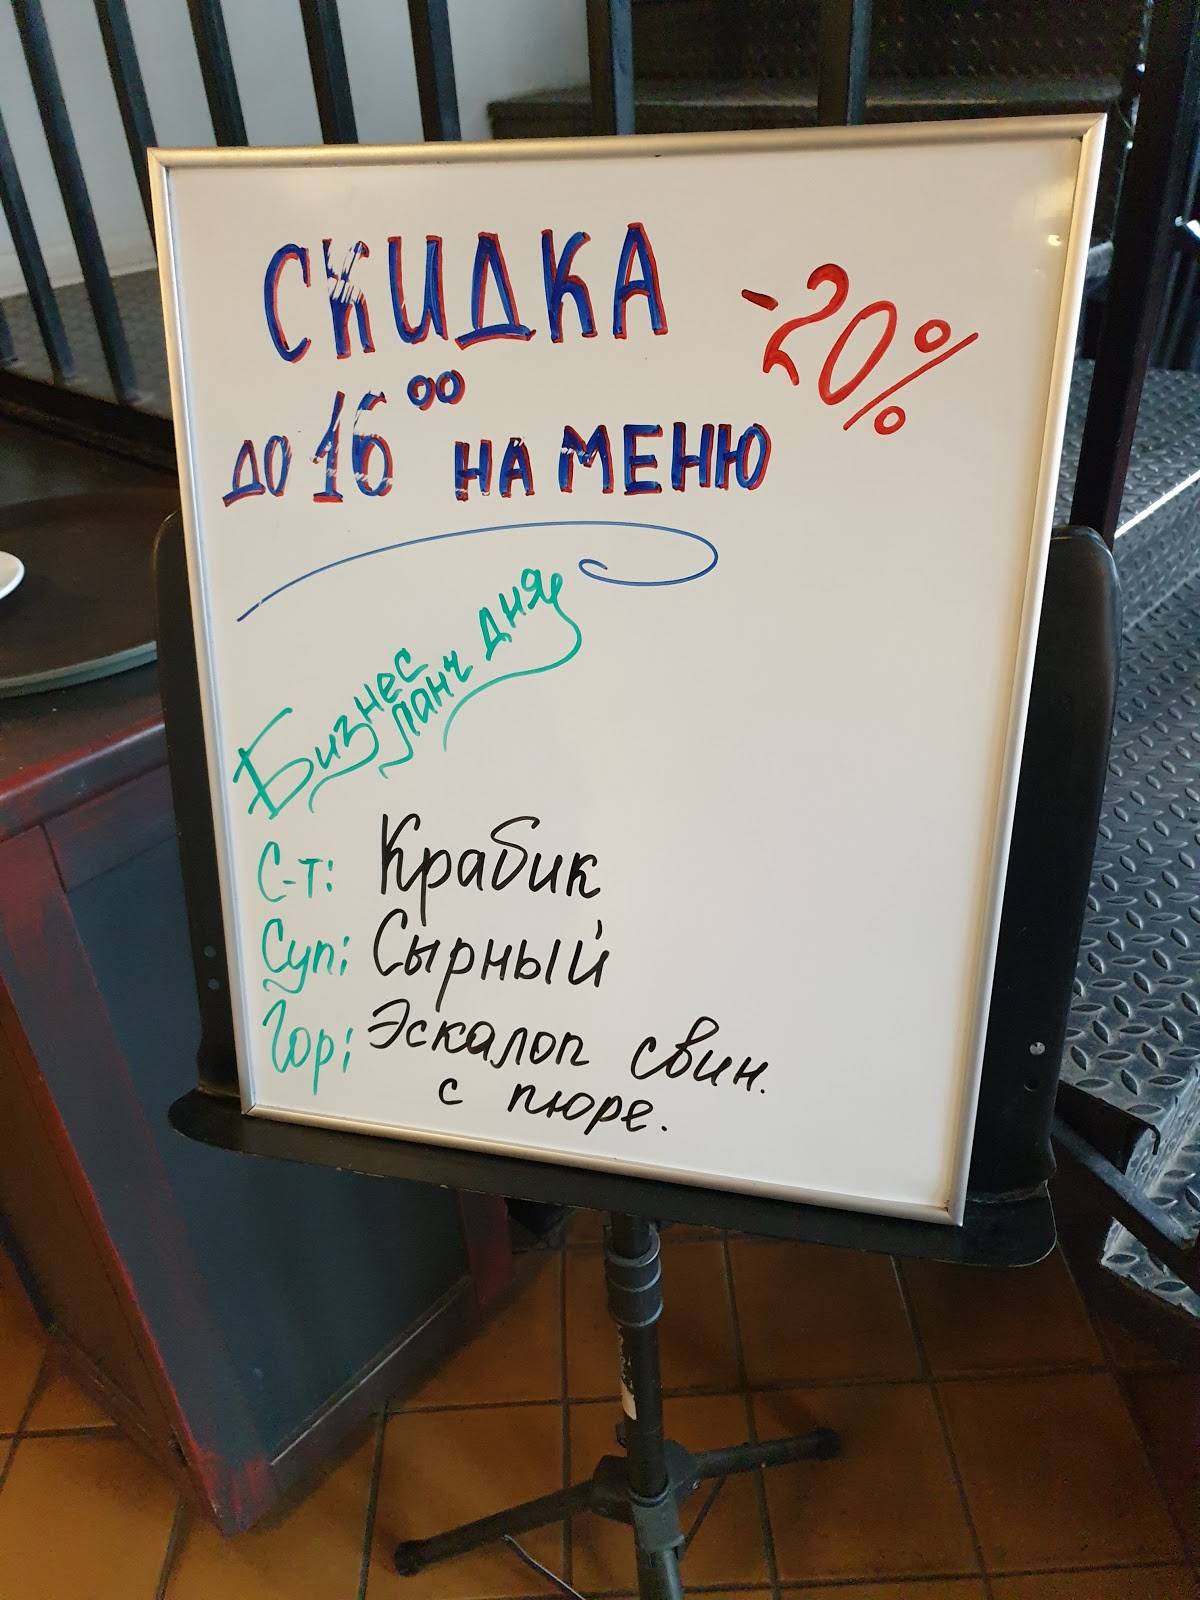 СКИДКА -20%
ДО 16⁰⁰ НА МЕНЮ
Бизнес
ланч дня
С-т: Крабик
Суп: Сырный
Гор: Эскалоп свин.
с пюре.